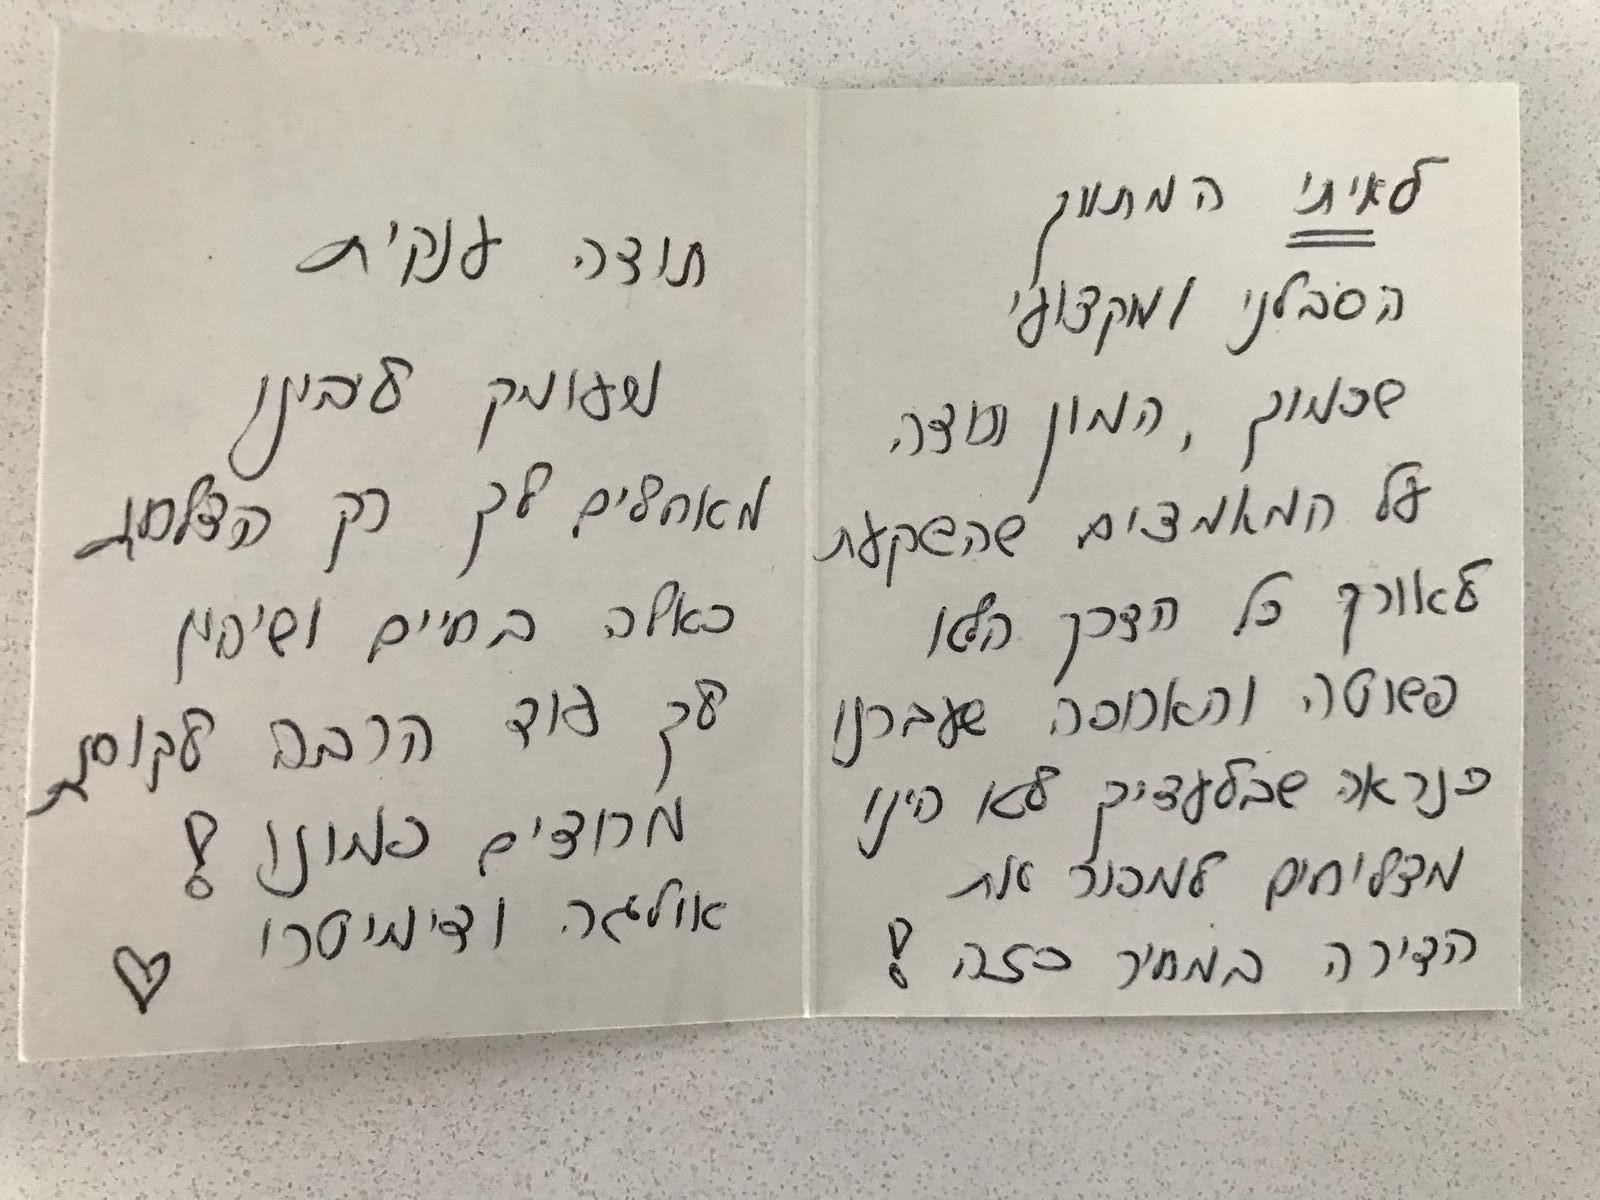 לאיתי המתוק
הסבלני ומקצועי
שכמוך, המון תודה
על המאמצים שהשקעת
לאורך כל הדרך הלא
פשוטה והארוכה שעברנו
כנראה שבלעדיך לא היינו
מצליחים למכור את
הדירה במחיר כזה!
תודה ענקית
מעומק ליבינו
מאחלים לך רק הצלחות
כאלה בחיים ושיהיו
לך עוד הרבה לקוחות
מרוצים כמונו!
אולגה ודימיטרי